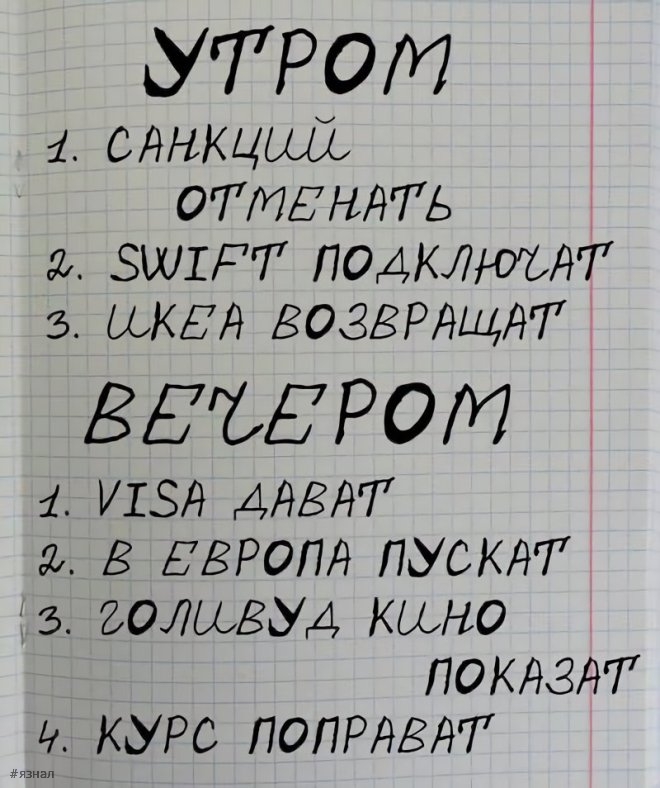 УТРОМ
1. САНКЦИЙ
ОТМЕНАТЬ
2. SWIFT ПОДКЛЮЧАТ
3. ИКЕА ВОЗВРАЩАТ
ВЕЧЕРОМ
1. VISA ДАВАТ
2. В ЕВРОПА ПУСКАТ
3. ГОЛИВУД КИНО
ПОКАЗАТ
4. КУРС ПОПРАВАТ
#язнал